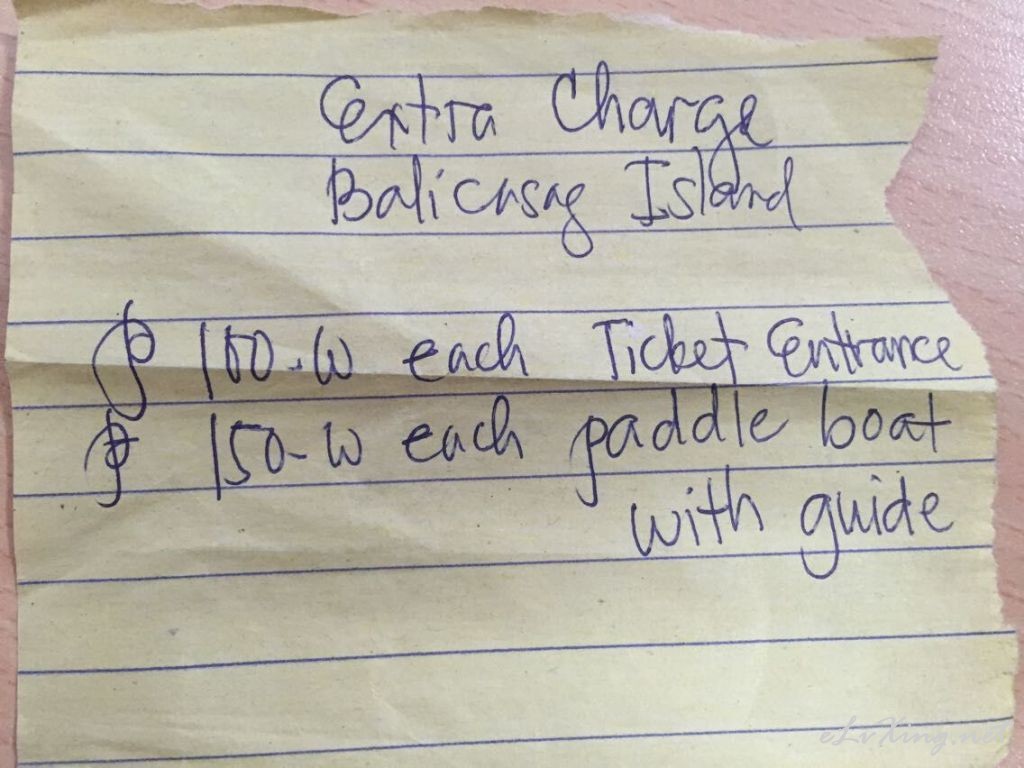 Extra Charge
Balicasag Island
₱ 100.00 each Ticket Entrance
₱ 150-00 each paddle boat
with guide
eLvXing.net